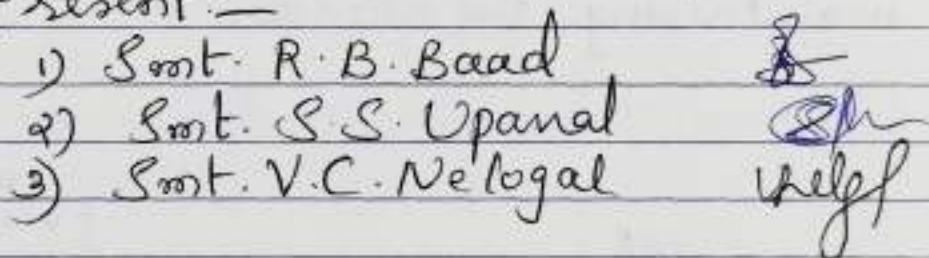 1) Smt. R. B. Baad
2) Smt. S. S. Upanal
3) Smt. V. C. Nelogal